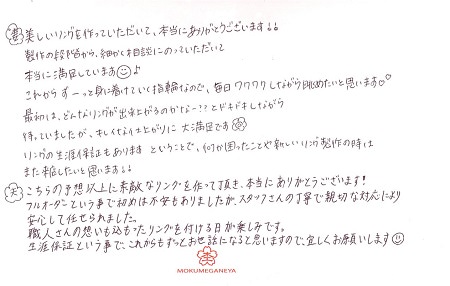 妻 美しいリングを作っていただいて、本当にありがとうございます!!
製作の段階から、細かく相談にのっていただいて
本当に満足しています♪
これからずーっと身に着けていく指輪なので、毎日ワクワクしながら眺めたいと思います♡
最初は、どんなリングが出来上がるのかなー??とドキドキしながら
待っていましたが、キレイな仕上がりに大満足です
リングの生涯保証もあります ということで、何か困ったことや新しいリング製作の時は
また来店したいと思います!!
夫 こちらの予想以上に素敵なリングを作って頂き、本当にありがとうございます!
フルオーダーという事で初めは不安もありましたが、スタッフさんの丁寧で親切な対応により
安心して任せられました。
職人さんの想いも込もったリングを付ける日が楽しみです。
生涯保証という事で、これからもずっとお世話になると思いますので、宜しくお願いします
MOKUMEGANEYA